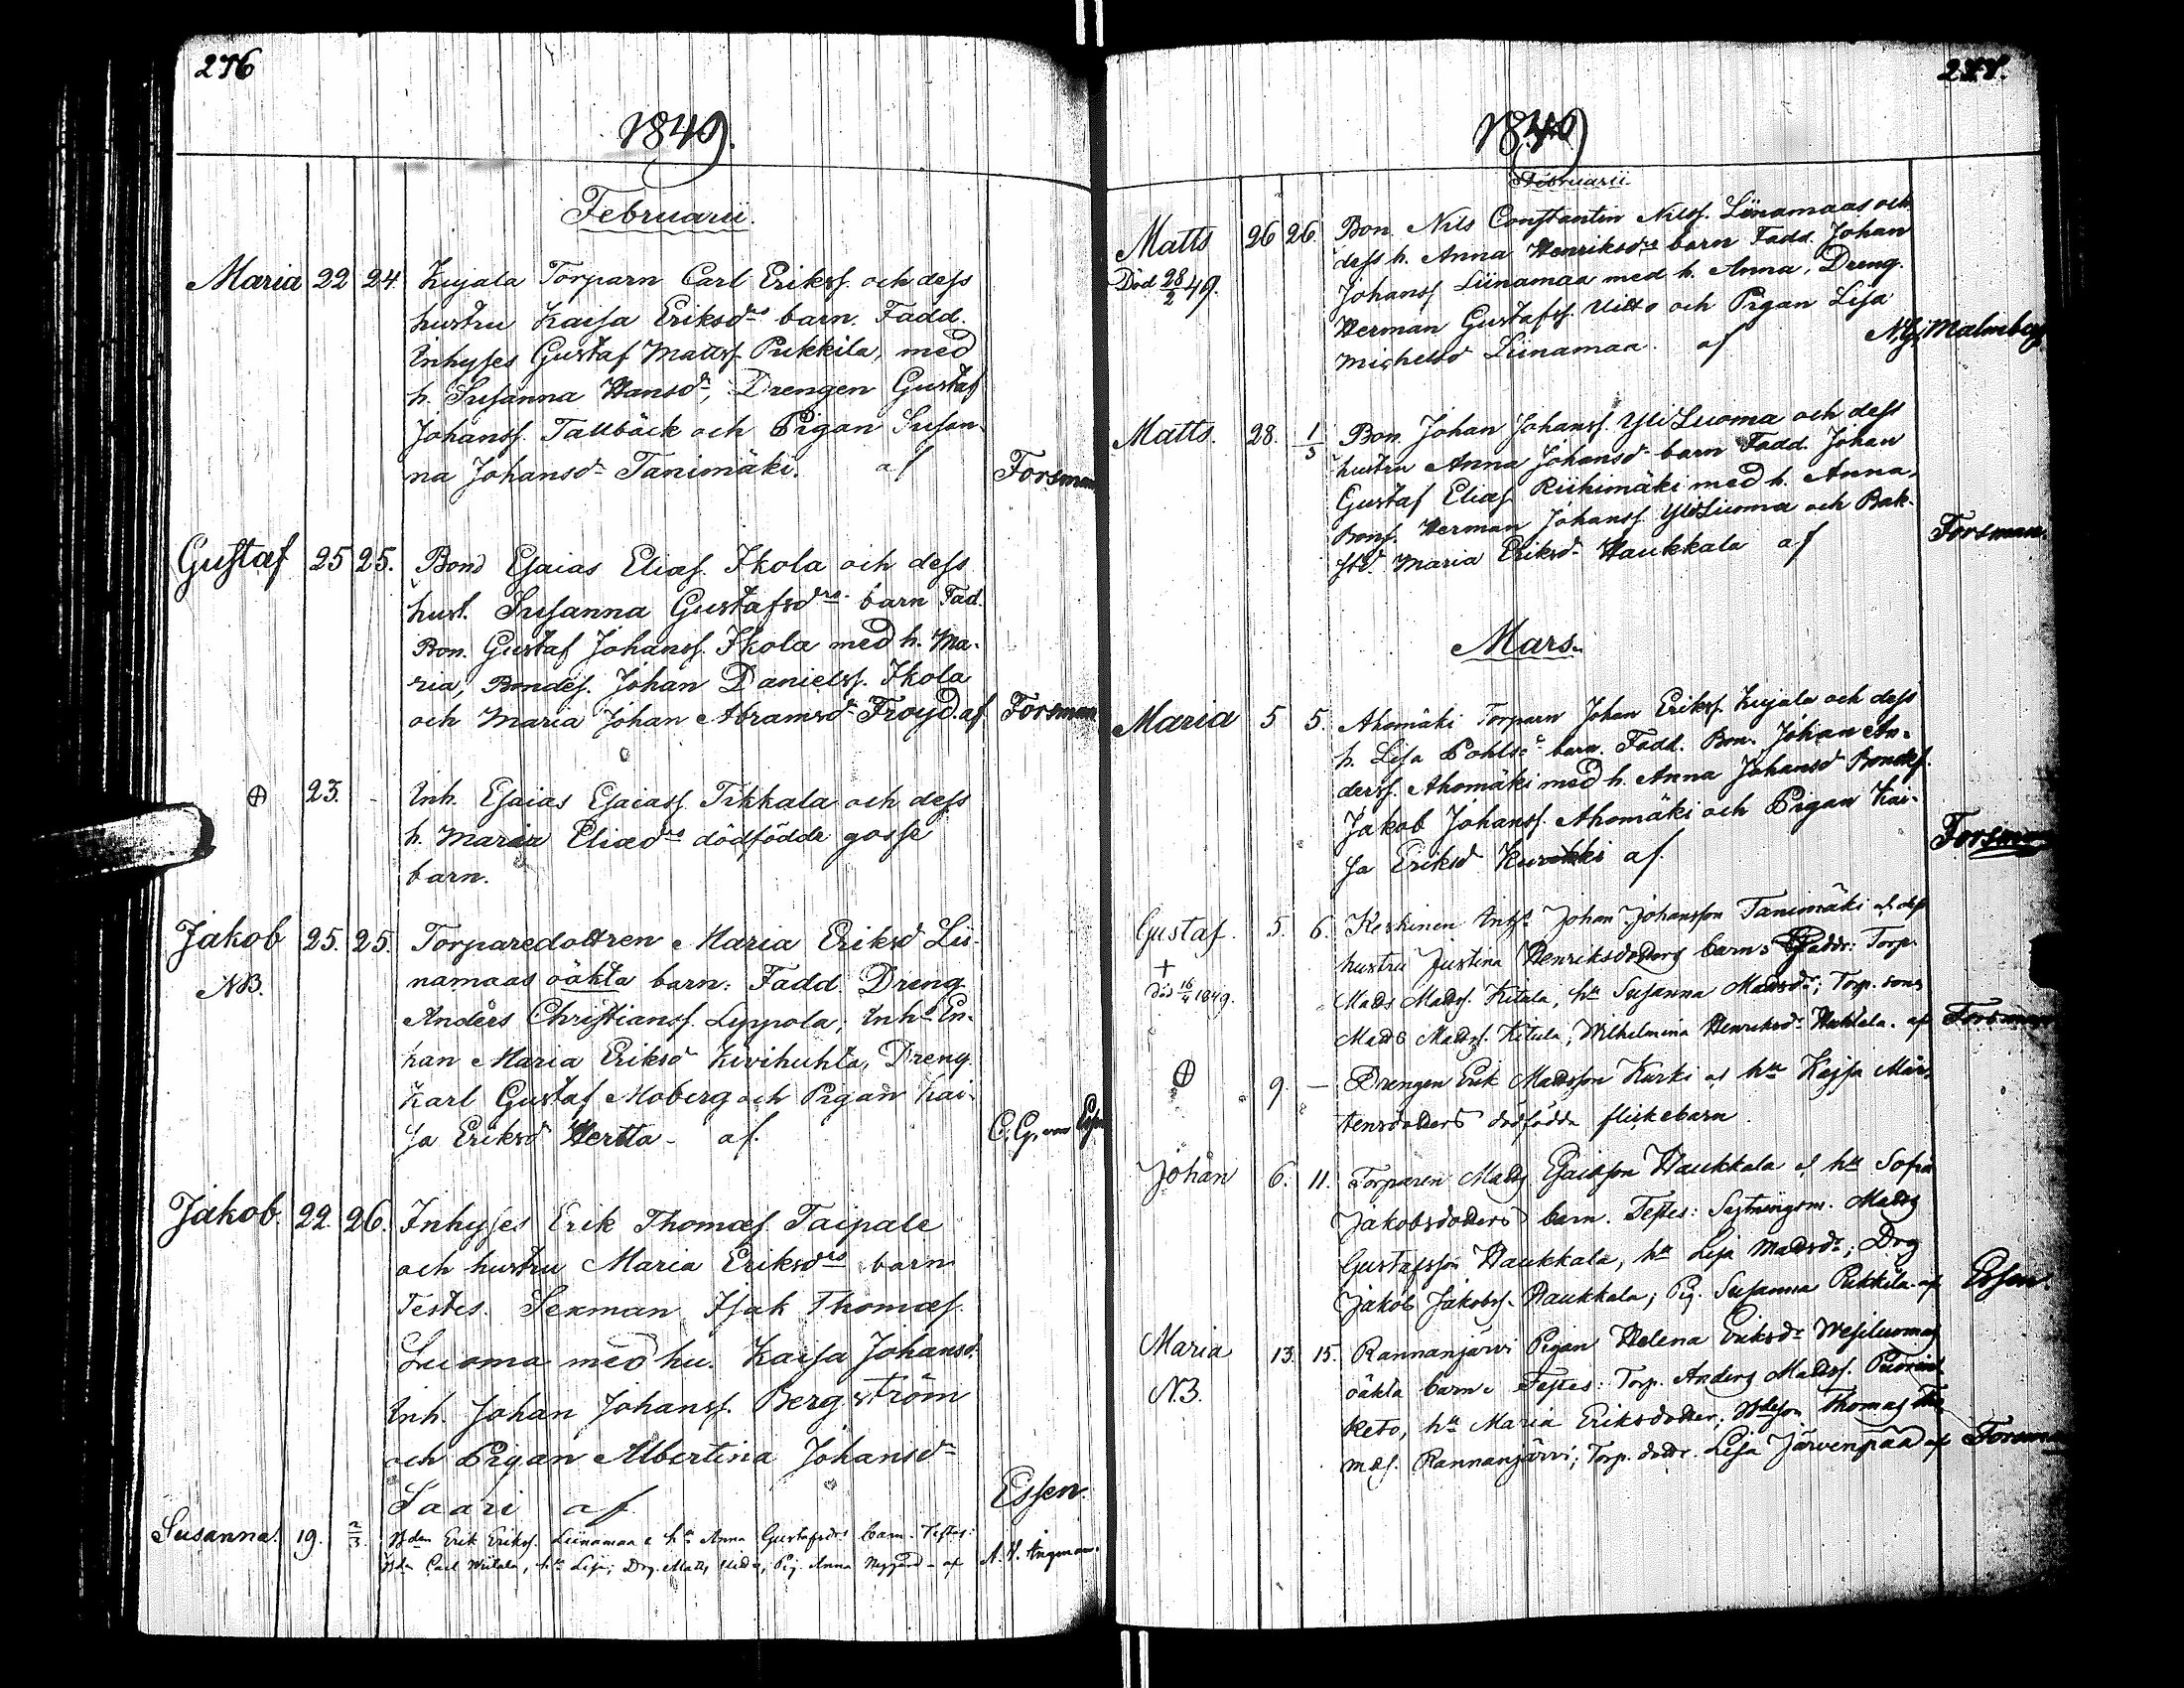 276
1849.
Februarii.
Maria 22 24. Kujala Torparn Carl Erikss. och dess
hustru Kaisa Eriksdrs barn. Fadd.
Inhyses Gustaf Mattss. Pukkila, med
h. Susanna Hansdr, Drengen Gustaf
Johanss. Tallbäck och Pigan Susan-
na Johansdr Tanimäki. af Forsman
Gustaf 25 25. Bond Esaias Elias. Ikola och dess
hust. Susanna Gustafsdrs barn Fad.
Bon. Gustaf Johanss. Ikola med h. Ma-
ria, Bondes. Johan Danielss. Ikola
och Maria Johan Abramsdr Froyd. af Forsman
⊕ 23. - Inh. Esaias Esaiass. Tikkala och dess
h. Maria Eliaedrs dödfödda gosse
barn.
Jakob 25. 25. Torparedottren Maria Eriksd Lii-
NB. namaas oäkta barn: Fadd. Dreng
Anders Christianss. Lyppola, Inhs En-
kan Maria Eriksd Kivihuhta, Dreng
Karl Gustaf Moberg och Pigan Kai-
sa Eriksd Hertta - af. C. G. von Essen
Jakob. 22. 26. Inhyses Erik Thomæs. Taipale
och hustru Maria Eriksdrs barn
Testes. Sexman Isak Thomæs.
Luoma med hu. Kaisa Johansd.
Inh. Johan Johanss. Bergström
och Pigan Albertina Johansdr
Saari af Essen.
Susanna. 19. 2/3. Bden Erik Erikss. Liinamaa & hu Anna Gustafsdrs barn. Testes:
Bden Carl Wutala, hu Lisa; Drg. Matts Uitto, Pig. Anna Nygård - af A. V. Ingman.
277.
1849
Februarii.
Matts 26 26. Bon. Nils Constantin Nilss. Liinamaas och
Död 28/2 49. dess h. Anna Henriksdrs barn Fadd. Johan
Johanss Liinamaa med h. Anna, Dreng.
Herman Gustafss. Uitto och Pigan Lisa
Michelsd Liinamaa. af N. G. Malmberg
Matts. 28. 1/3 Bon. Johan Johanss. Yli Luoma och dess
hustru Anna Johansdr barn Fadd. Johan
Gustaf Elias. Riihimäki med h. Anna,
Bons. Herman Johanss. YliLuoma och Bak-
std. Maria Eriksdr Haukkala af Forsman.
Mars.
Maria 5 5. Ahomäki Torparn Johan Erikss. Kujala och dess
h. Lisa Pohlsdr barn. Fadd. Bon. Johan An-
derss. Ahomäki med h. Anna Johansd Bondes.
Jakob Johanss. Ahomäki och Pigan Kai-
sa Eriksd Kurikki af. Forsman
Gustaf. 5. 6. Keskinen Inhs. Johan Johansson Tanimäki & dess
+ hustru Justina Henriksdotters barn: Faddr: Torp.
död 16/4 1849. Mads Madss. Kitula, hu Susanna Madsdr; Torp. sons
Mads Madss. Kitula, Wilhelmina Henriksdr Hakkola. af Forsman
⊕ 9. - Drengen Erik Madsson Kurki & hu Kajsa Mår-
tensdotters dödfödda flickebarn.
Johan 6. 11. Torparen Mads Esaiasson Haukkala & hu Sofia
Jakobsdotters barn. Testes: Sextningsm. Mads
Gustafsson Haukkala, hu Lisa Madsdr; Drg
Jakob Jakobss. Haukkala; Pig. Susanna Pukkila. af Essen.
Maria 13. 15. Rannanjärvi Pigan Helena Eriksdr Wesiluomas
NB. oäkta barn. Testes: Torp. Anders Madss.
keto, hu Maria Eriksdotter; Bdeson Thomas Tho-
mæs. Rannanjärvi; Torp. dottr. Lisa Järvenpää af Forsman